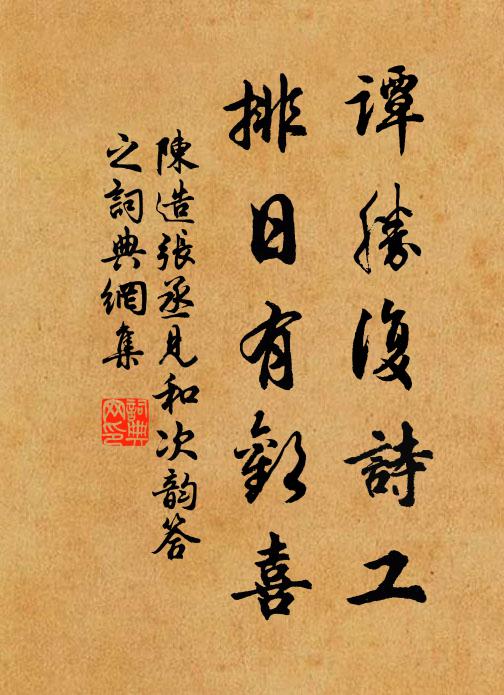 譚勝復詩工
排日有歡喜
陳造張丞見和次韵答
之詞典網集
詞典網印